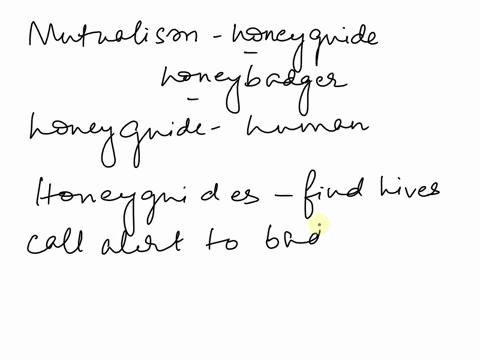 Mutualison - honeyguide
honeybadger
honeyguide - human
Honeyguides - find hives
call alert to bad